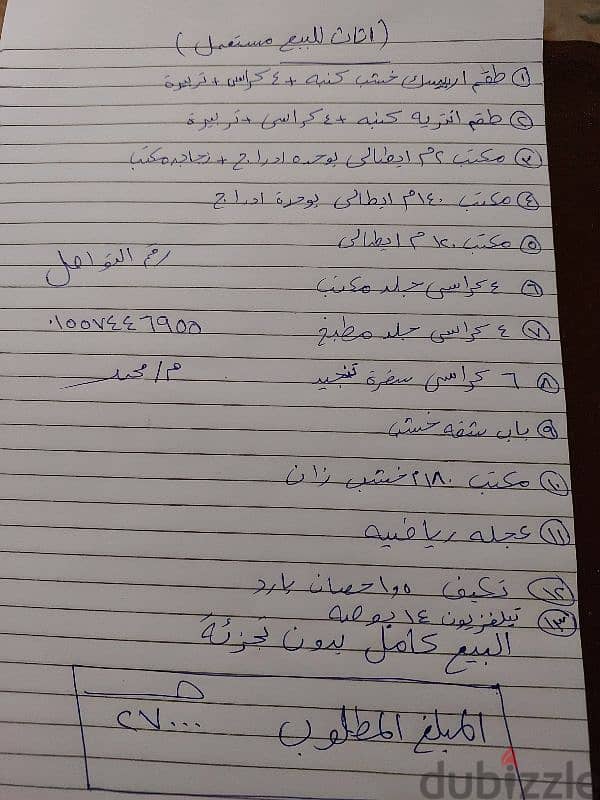 (اثاث للبيع مستعمل)
① طقم اربيسك خشب كنبه + ٤ كراسى + تربيزة
② طقم انتريه كنبه + ٤ كراسى + تربيزة
③ مكتب ٢م ايطالى بوحده ادراج + مكتب
④ مكتب ١٤٠م ايطالى بوحدة ادراج
⑤ مكتب ١٢٠م ايطالى
⑥ ٤ كراسى جلد مكتب
⑦ ٤ كراسى جلد مطبخ
⑧ ٦ كراسى سفرة تنجيد
⑨ باب شقه خشب
⑩ مكتب ١٨٠م خشب زان
⑪ عجله رياضيه
⑫ تكييف ١٫٥ حصان بارد
⑬ تيلفزيون ١٤ بوصه
البيع كامل بدون تجزئة
رقم التواصل
٠١٥٥٧٤٤٦٩٥٥
م/محمد
المبلغ المطلوب ٢٧٠٠٠
dubizzle